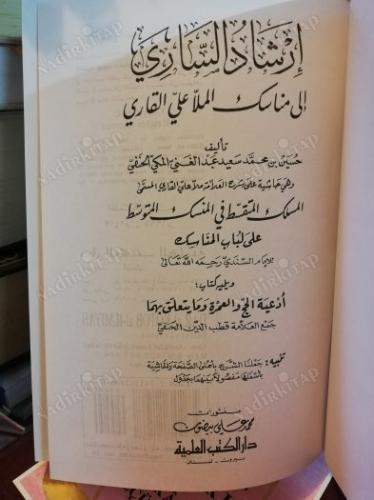 إرشاد الساري
إلى مناسك الملا علي القاري
تأليف
حسين بن محمد سعيد عبد الغني المكي الحنفي
وهي حاشية على شرح العلامة ملا علي القاري المسمى
المسلك المتقسط في المنسك المتوسط
على لباب المناسك
للإمام السندي رحمه الله تعالى
ويليه كتاب:
أدعية الحج والعمرة وما يتعلق بهما
جمع العلامة قطب الدين الحنفي
تنبيه: جعلنا الشرح بأعلى الصفحة والحاشية
بأسفلها مفصولاً بينهما بجدول
منشورات
محمد علي بيضون
دار الكتب العلمية
بيروت - لبنان
NadirKitap